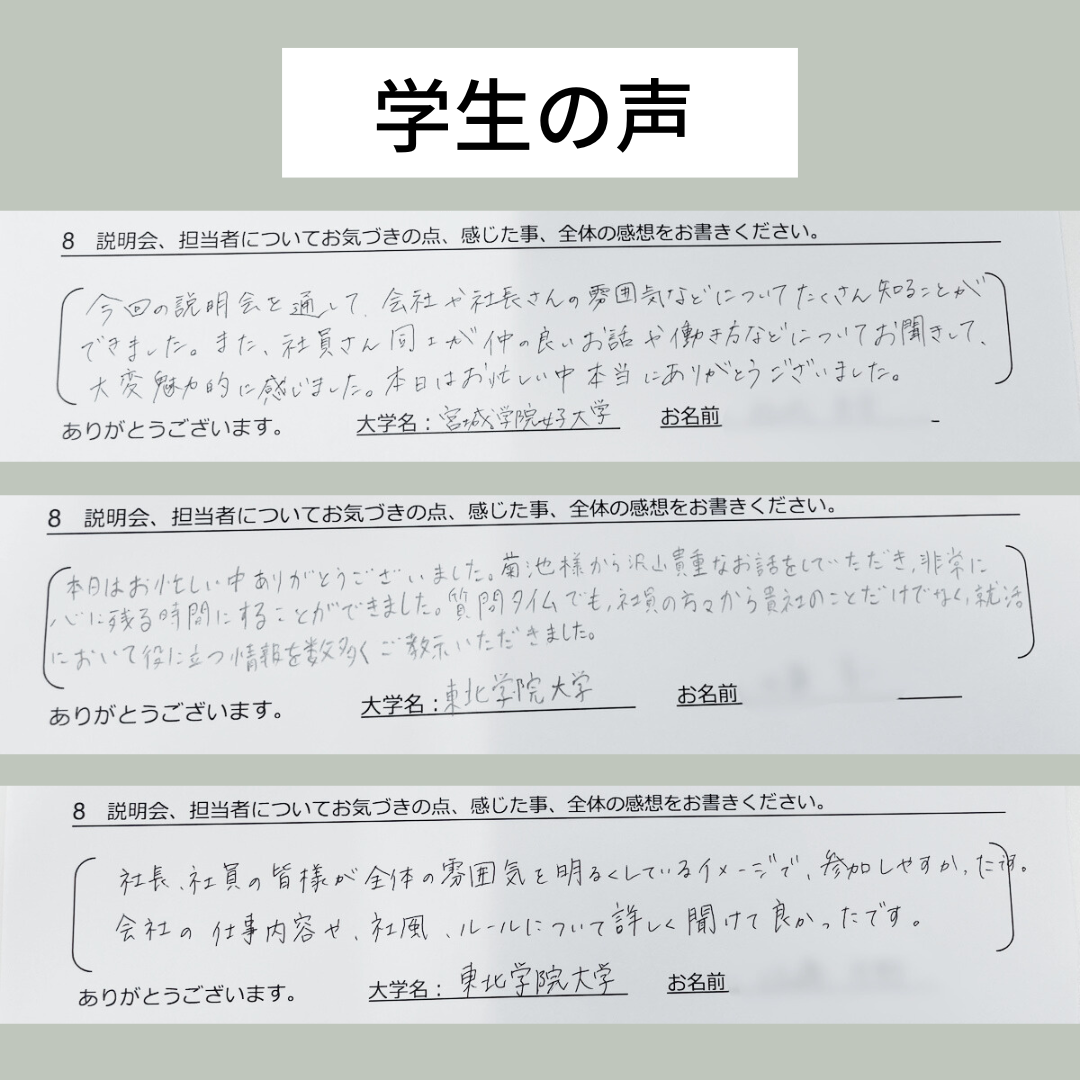 学生の声
8 説明会、担当者についてお気づきの点、感じた事、全体の感想をお書きください。
今回の説明会を通して、会社や社長さんの雰囲気などについてたくさん知ることが
できました。また、社員さん同士が仲の良いお話や働き方などについてお聞きして、
大変魅力的に感じました。本日はお忙しい中本当にありがとうございました。
ありがとうございます。 大学名：宮城学院女子大学 お名前
8 説明会、担当者についてお気づきの点、感じた事、全体の感想をお書きください。
本日はお忙しい中ありがとうございました。菊池様から沢山貴重なお話をしていただき、非常に
心に残る時間にすることができました。質問タイムでも、社員の方々から貴社のことだけでなく、就活
において役に立つ情報を数多くご教示いただきました。
ありがとうございます。 大学名：東北学院大学 お名前
8 説明会、担当者についてお気づきの点、感じた事、全体の感想をお書きください。
社長、社員の皆様が全体の雰囲気を明るくしているイメージで、参加しやすか,た
会社の仕事内容や、社風、ルールについて詳しく聞けて良かったです。
ありがとうございます。 大学名：東北学院大学 お名前